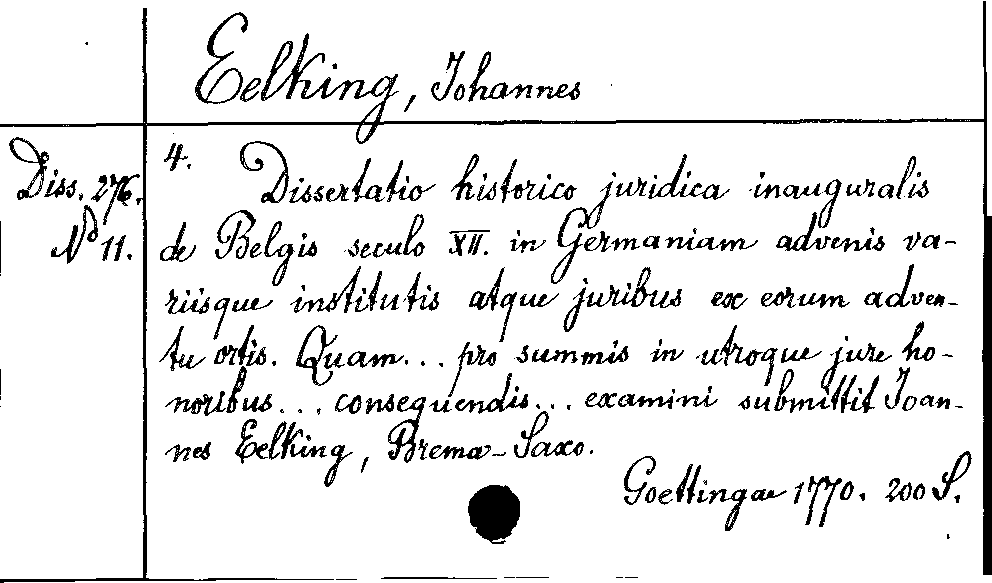 Eelking, Johannes
Diss. 276.
No 11.
4. Dissertatio historico juridica inauguralis
de Belgis seculo XII. in Germaniam advenis va-
riisque institutis atque juribus ex eorum adven-
tu ortis. Quam... pro summis in utroque jure ho-
noribus... consequendis... examini submittit Joan-
nes Eelking, Brema-Saxo.
Goettingae 1770. 200 S.